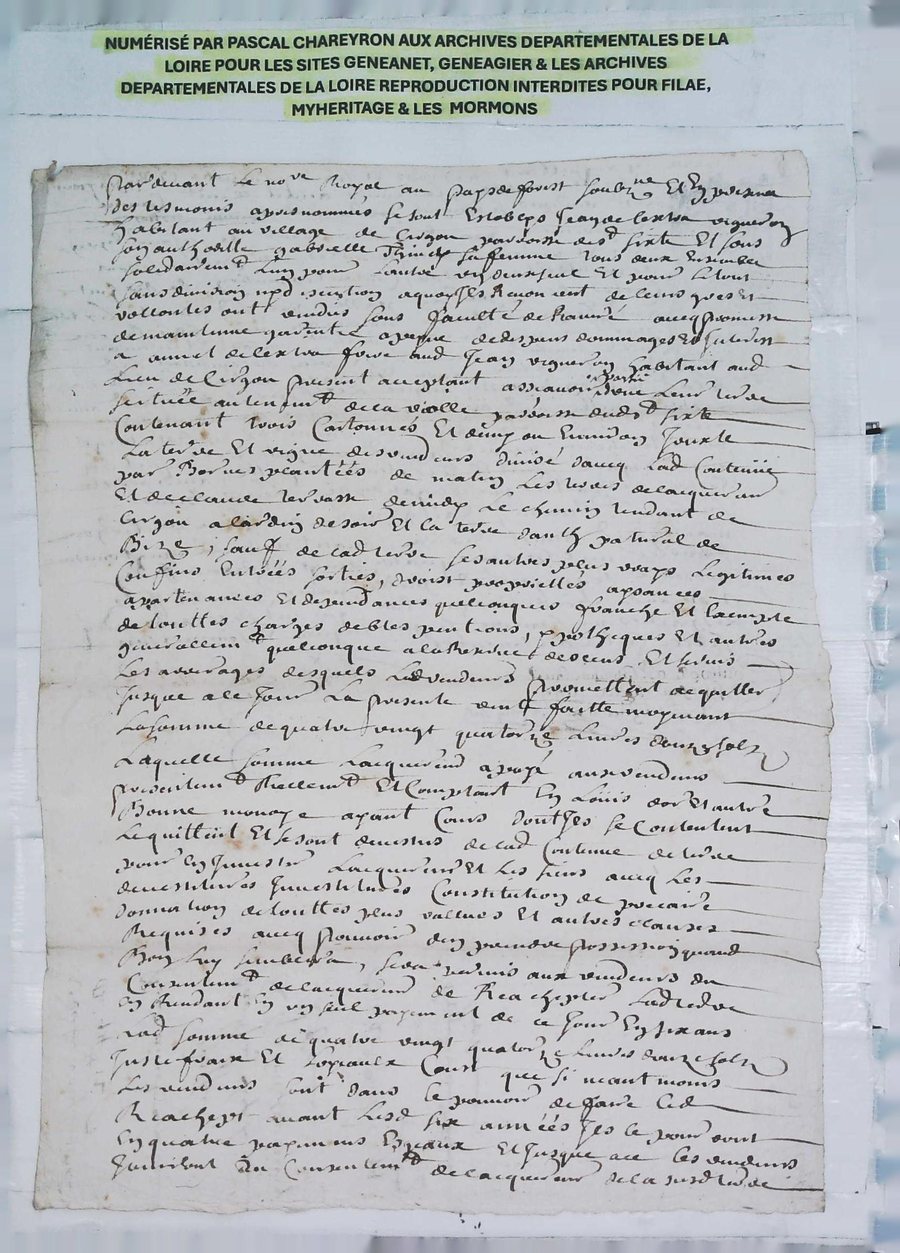 NUMÉRISÉ PAR PASCAL CHAREYRON AUX ARCHIVES DEPARTEMENTALES DE LA
LOIRE POUR LES SITES GENEANET, GENEAGIER & LES ARCHIVES
DEPARTEMENTALES DE LA LOIRE REPRODUCTION INTERDITES POUR FILAE,
MYHERITAGE & LES MORMONS
Par devant le no.re Royal au pays de forest soubz.ne Et En presence
des tesmoins apres nommes se sont Establys Jean de lextra vigneron
habitant au village de Cirgon parroisse de s.t sixte Et sous
son authorité gabrielle sa femme tous deux Ensemble
solidairem.t l'un pour l'autre un deux seul Et pour le tout
sans division ny discution a quoy Ils Renoncent de leurs gres Et
vollontes ont vendus sous faculté de Rachapt avecq promesse
de maintenue garentie a peyne de despans dommages Et Interests
a annet de lextra frere aud Jean vigneron habitant aud
Lieu de Cirgon present acceptant assavoir Leur terre
sertuée au tenem.t de la violle parroisse dud s.t sixte
Contenant trois Cartonnes Et demy ou Environ Jouxte
La terre Et vigne des vendeurs divisé davecq lad Contenue
par Bornes plantéés de matin les terres de lacquereur
Et de claude terrasse de midy Le chemin tendant de
Cirgon a de soir Et la terre d'anth.. patural de
Bize, sauf de lad terre ses autres plus vrays legitimes
Confins Entréés sorties, droist proprietés aysances
apartenances Et dependances quelconques franche Et Exempte
de touttes charges debtes pentions, ypotheques Et autres
generallem.t quelconque a la Reserve des cens Et servis
Les arrerages desquels Lesd vendeurs promettent acquitter
Jusque a ce Jour La presente vente faitte moyenant
La somme de quatre vingt quatorze Livres douze sols
Laquelle somme Lacquereur a payé aux vendeurs
presentem.t Reellem.t Et Comptant En Louis d'or Et autre
Bonne monoye ayant Cours dont Ils se Contentent
Le quittent Et se sont demestus de lad Contenue de terre
pour En Jnvestir Lacquereur Et les siens avecq Les
devestitures Jnvestitures Constitution de precaire
donnation de touttes plus vallues Et autres clauses
Requises avecq pouvoir d'en prendre possession quand
Bon luy semblera, sera permis aux vendeurs du
Consentem.t de lacquereur de Reachepter Ladterre
En Rendant En un seul payement de ce Jour En six ans
lad somme de quatre vingt quatorze Livres douze sols
Juste fraix Et Loyaulx Coust que si neantmoins
Les vendeurs sont dans le pouvoir de faire led
Reachept avant Lesd six annéés Ils le pourront
En quatre payemens Egeaux Et Jusque a ce les vendeurs
Jouiront Du Consentem.t de lacquereur de la susd terre